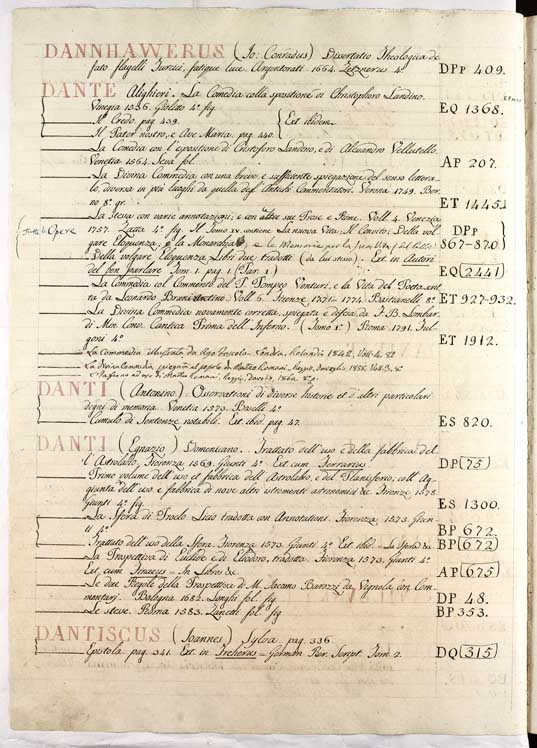 DANNHAWERUS (Jo: Conradus) Dissertatio Theologica de
fato flagelli Turcici, Argentorati 1664. 4.º DPp 409.
DANTE Alighieri. La Comedia colla spositione di Christophoro Landino.
Venegia 1536. Giolito 4.º fig. EQ 1368.
Il Credo. pag. 439. Ext. ibidem.
Il Pater nostro, e Ave Maria. pag. 440.
La Comedia con l'espositione di Cristoforo Landino, e di Alessandro Vellutello.
Venetia 1564. Sessa fol. AP 207.
La Divina Commedia con una breve e sufficiente spiegazione del senso lettera-
le, diversa in più luoghi da quella degl' Antichi Commentatori. Verona 1749. Ber-
no 8.º gr. ET 1445
La stessa con varie annotazioni e con altre sue Prose e Rime. Voll. 4. Venezia
tutte le Opere 1757. Zatta 4.º fig. Il Tomo IV. contiene La nuova Vita: Il Convito: Della vol- DPp
gare Eloquenza, e la Monarchia e le Memorie per la 867-870.
Della volgare Eloquenza Libri due tradotti (da lui stesso). Ext. in Autori
del ben parlare Tom. 1. pag. 1 (Par. 1) EQ 2441
La Commedia col Commento del P. Pompeo Venturi: e la Vita del Poeta scrit-
ta da Leonardo Bruni Aretino. Voll. 5. Firenze 1771-1774. Bastianelli 8.º ET 927-932.
La Divina Commedia novamente corretta, spiegata e difesa da F. B. Lombar-
di Min. Conv. Cantica Prima dell' Inferno. (Tomo 1.º) Roma 1791. Ful-
goni 4.º ET 1912.
La Commedia illustrata da Ugo Foscolo. Londra, Rolandi 1842. Voll. 4. 8.º
La Divina Commedia spiegata al popolo da Matteo Romani. Reggio, Davolio, 1858. Voll. 3. 8.º
di Matteo Romani. Reggio, Davolio, 1860.
DANTI (Antonino) Osservationi di diverse historie et d' altri particolari
degni di memoria. Venetia 1573. Boselli 4.º
Cumulo di Sentenze notabili. Ext. ibid. pag. 47. ES 820.
DANTI (Egnazio) Domenicano. Trattato dell' uso e della fabbrica del-
l' Astrolabio, Fiorenza 1569. Giunti 4.º Ext. cum Ferrarius. DP 75
Primo volume dell' uso et fabbrica dell' Astrolabio, e del Planisferio, coll' Ag-
giunta dell' uso e fabbrica di nove altri istromenti astronomici &c. Firenze 1578.
Giunti 4.º fig. ES 1300.
La Sfera di Proclo Licio tradotta con Annotazioni. Fiorenza 1573. Giun-
ti 4.º BP 672.
Trattato dell' uso della Sfera. Fiorenza 1573. Giunti 4.º Ext. ibid. La Sfera &c BP 672
La Prospettiva di Euclide e di Eliodoro, tradotta. Fiorenza 1573. Giunti 4.º
Ext. cum Finaeus - In Libros &c AP 675
Le due Regole della Prospettiva di M. Jacomo Barozzi da Vignola con Com-
mentari. Bologna 1682. Longhi fol. fig. DP 48.
Le stesse. Roma 1583. Zanetti fol. fig. BP 353.
DANTISCUS (Joannes) Sylva pag. 336.
Epistola pag. 341. Ext. in Freherus - German. Rer. Script. Tom. 2. DQ 315